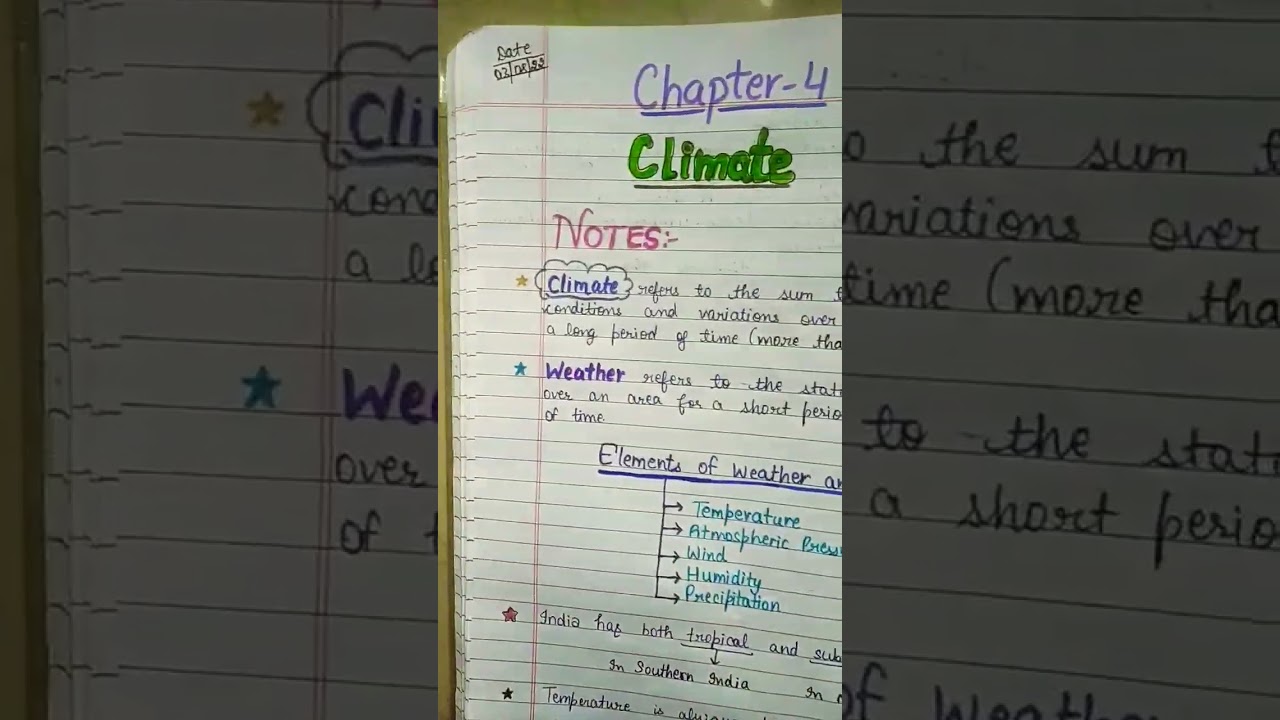 Date
Chapter-4
Climate
NOTES:-
Climate refers to the sum t
conditions and variations over
a long period of time (more tha
Weather refers to the stat
over an area for a short perio
of time.
Elements of weather an
Temperature
Atmospheric Press
Wind
Humidity
Precipitation
India has both tropical and sub
In Southern India In
Temperature is always